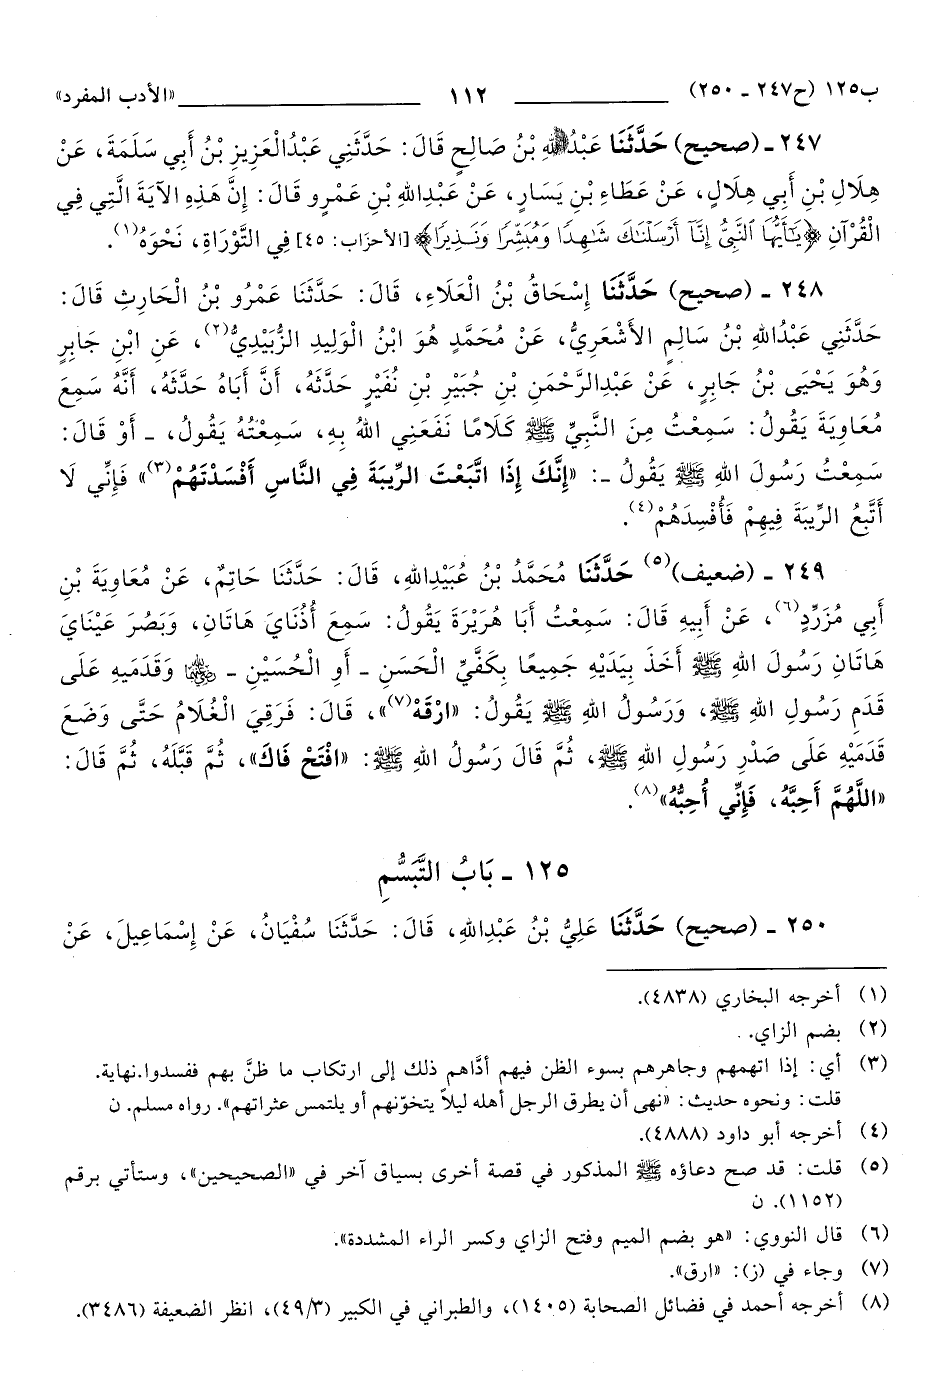 ب١٢٥ (ح٢٤٧ ـ ٢٥٠) ١١٢ «الأدب المفرد»
٢٤٧ ـ (صحيح) حَدَّثَنَا عَبْدُاللهِ بْنُ صَالِحٍ قَالَ: حَدَّثَنِي عَبْدُالْعَزِيزِ بْنُ أَبِي سَلَمَةَ، عَنْ
هِلَالِ بْنِ أَبِي هِلَالٍ، عَنْ عَطَاءِ بْنِ يَسَارٍ، عَنْ عَبْدِاللهِ بْنِ عَمْرٍو قَالَ: إِنَّ هَذِهِ الآيَةَ الَّتِي فِي
الْقُرْآنِ ﴿يَٰٓأَيُّهَا ٱلنَّبِيُّ إِنَّآ أَرْسَلْنَٰكَ شَٰهِدًا وَمُبَشِّرًا وَنَذِيرًا﴾ [الأحزاب: ٤٥] فِي التَّوْرَاةِ، نَحْوَهُ(١).
٢٤٨ ـ (صحيح) حَدَّثَنَا إِسْحَاقُ بْنُ الْعَلَاءِ، قَالَ: حَدَّثَنَا عَمْرُو بْنُ الْحَارِثِ قَالَ:
حَدَّثَنِي عَبْدُاللهِ بْنُ سَالِمٍ الأَشْعَرِيُّ، عَنْ مُحَمَّدٍ هُوَ ابْنُ الْوَلِيدِ الزُّبَيْدِيُّ(٢)، عَنِ ابْنِ جَابِرٍ
وَهُوَ يَحْيَى بْنُ جَابِرٍ، عَنْ عَبْدِالرَّحْمَنِ بْنِ جُبَيْرِ بْنِ نُفَيْرٍ حَدَّثَهُ، أَنَّ أَبَاهُ حَدَّثَهُ، أَنَّهُ سَمِعَ
مُعَاوِيَةَ يَقُولُ: سَمِعْتُ مِنَ النَّبِيِّ ﷺ كَلَامًا نَفَعَنِي اللهُ بِهِ، سَمِعْتُهُ يَقُولُ، ـ أَوْ قَالَ:
سَمِعْتُ رَسُولَ اللهِ ﷺ يَقُولُ ـ: «إِنَّكَ إِذَا اتَّبَعْتَ الرِّيبَةَ فِي النَّاسِ أَفْسَدْتَهُمْ(٣)» فَإِنِّي لَا
أَتَّبِعُ الرِّيبَةَ فِيهِمْ فَأُفْسِدَهُمْ(٤).
٢٤٩ ـ (ضعيف)(٥) حَدَّثَنَا مُحَمَّدُ بْنُ عُبَيْدِاللهِ، قَالَ: حَدَّثَنَا حَاتِمٌ، عَنْ مُعَاوِيَةَ بْنِ
أَبِي مُزَرِّدٍ(٦)، عَنْ أَبِيهِ قَالَ: سَمِعْتُ أَبَا هُرَيْرَةَ يَقُولُ: سَمِعَ أُذُنَايَ هَاتَانِ، وَبَصُرَ عَيْنَايَ
هَاتَانِ رَسُولَ اللهِ ﷺ أَخَذَ بِيَدَيْهِ جَمِيعًا بِكَفَّيِّ الْحَسَنِ ـ أَوِ الْحُسَيْنِ ـ رضي الله عنهما وَقَدَمَيهِ عَلَى
قَدَمِ رَسُولِ اللهِ ﷺ، وَرَسُولُ اللهِ ﷺ يَقُولُ: «ارْقَهْ(٧)»، قَالَ: فَرَقِيَ الْغُلَامُ حَتَّى وَضَعَ
قَدَمَيْهِ عَلَى صَدْرِ رَسُولِ اللهِ ﷺ، ثُمَّ قَالَ رَسُولُ اللهِ ﷺ: «افْتَحْ فَاكَ»، ثُمَّ قَبَّلَهُ، ثُمَّ قَالَ:
«اللَّهُمَّ أَحِبَّهُ، فَإِنِّي أُحِبُّهُ»(٨).
١٢٥ ـ بَابُ التَّبَسُّمِ
٢٥٠ ـ (صحيح) حَدَّثَنَا عَلِيُّ بْنُ عَبْدِاللهِ، قَالَ: حَدَّثَنَا سُفْيَانُ، عَنْ إِسْمَاعِيلَ، عَنْ
(١) أخرجه البخاري (٤٨٣٨).
(٢) بضم الزاي.
(٣) أي: إذا اتهمهم وجاهرهم بسوء الظن فيهم أدَّاهم ذلك إلى ارتكاب ما ظنَّ بهم ففسدوا.نهاية.
قلت: ونحوه حديث: «نهى أن يطرق الرجل أهله ليلاً يتخوّنهم أو يلتمس عثراتهم». رواه مسلم. ن
(٤) أخرجه أبو داود (٤٨٨٨).
(٥) قلت: قد صح دعاؤه ﷺ المذكور في قصة أخرى بسياق آخر في «الصحيحين»، وستأتي برقم
(١١٥٢). ن
(٦) قال النووي: «هو بضم الميم وفتح الزاي وكسر الراء المشددة».
(٧) وجاء في (ز): «ارق».
(٨) أخرجه أحمد في فضائل الصحابة (١٤٠٥)، والطبراني في الكبير (٤٩/٣)، انظر الضعيفة (٣٤٨٦).